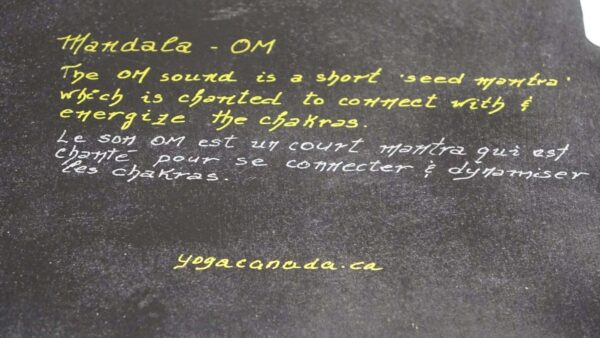 Mandala - OM
The OM sound is a short 'seed mantra'
which is chanted to connect with &
energize the chakras.
Le son OM est un court mantra qui est
chanté pour se connecter & dynamiser
les chakras.
yogacanada.ca